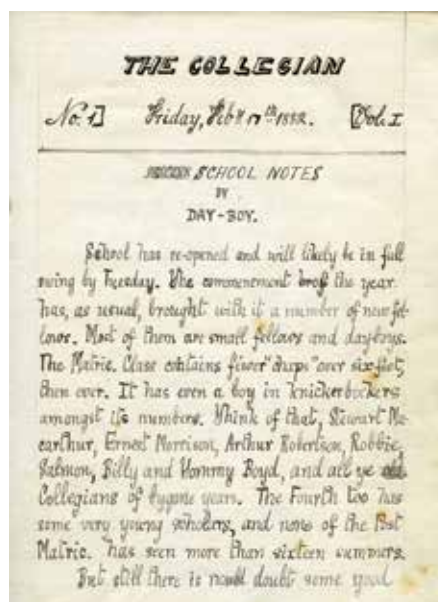 THE COLLEGIAN
No. 1] Friday, Feby 17th 1882. [Vol. I
SCHOOL NOTES
BY
DAY-BOY.
School has re-opened and will likely be in full
swing by Tuesday. The commencement of the year
has, as usual, brought with it a number of new fel-
lows. Most of them are small fellows and day-boys.
The Matric. Class contains fewer "chaps" over six feet,
then ever. It has even a boy in knickerbockers
amongst its numbers. Think of that, Stewart Mc-
carthur, Ernest Morrison, Arthur Robertson, Robbie,
Salmon, Billy and Tommy Boyd, and all ye old
Collegians of bygone years. The Fourth too has
some very young scholars, and none of the Post
Matric. has seen more than sixteen summers.
But still there is doubt some good